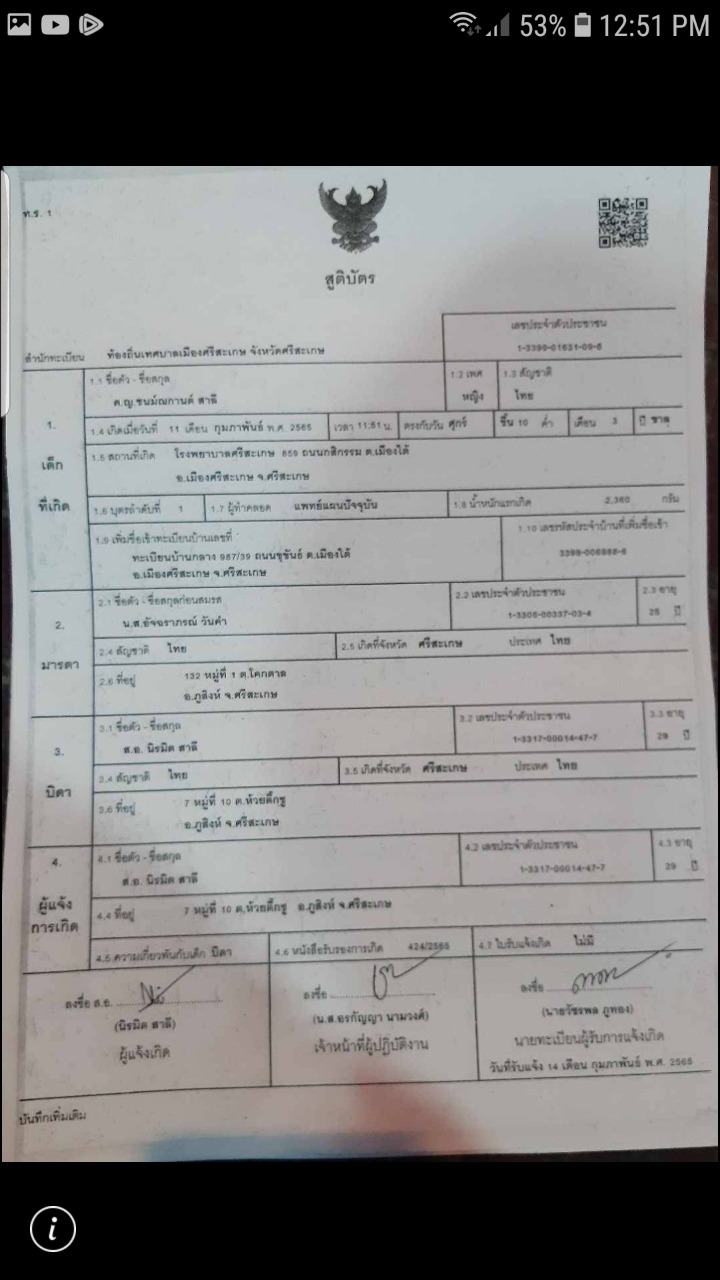 53% 12:51 PM
ท.ร. 1
สูติบัตร
สำนักทะเบียน ท้องถิ่นเทศบาลเมืองศรีสะเกษ จังหวัดศรีสะเกษ
เลขประจำตัวประชาชน
1-3399-01631-09-6
1. เด็กที่เกิด
1.1 ชื่อตัว - ชื่อสกุล
ด.ญ.ชนม์ณกานต์ สาลี
1.2 เพศ
หญิง
1.3 สัญชาติ
ไทย
1.4 เกิดเมื่อวันที่ 11 เดือน กุมภาพันธ์ พ.ศ. 2565 เวลา 11:51 น. ตรงกับวัน ศุกร์ ขึ้น 10 ค่ำ เดือน 3 ปี ขาล
1.5 สถานที่เกิด โรงพยาบาลศรีสะเกษ 859 ถนนกสิกรรม ต.เมืองใต้
อ.เมืองศรีสะเกษ จ.ศรีสะเกษ
1.6 บุตรลำดับที่ 1 1.7 ผู้ทำคลอด แพทย์แผนปัจจุบัน 1.8 น้ำหนักแรกเกิด 2,360 กรัม
1.9 เพิ่มชื่อเข้าทะเบียนบ้านเลขที่
ทะเบียนบ้านกลาง 987/39 ถนนขุขันธ์ ต.เมืองใต้
อ.เมืองศรีสะเกษ จ.ศรีสะเกษ
1.10 เลขรหัสประจำบ้านที่เพิ่มชื่อเข้า
2. มารดา
2.1 ชื่อตัว - ชื่อสกุลก่อนสมรส
น.ส.อัจฉราภรณ์ วันคำ
2.2 เลขประจำตัวประชาชน
1-3305-00337-03-4
2.3 อายุ
25 ปี
2.4 สัญชาติ ไทย 2.5 เกิดที่จังหวัด ศรีสะเกษ ประเทศ ไทย
2.6 ที่อยู่ 132 หมู่ที่ 1 ต.โคกตาล
อ.ภูสิงห์ จ.ศรีสะเกษ
3. บิดา
3.1 ชื่อตัว - ชื่อสกุล
ส.อ. นิรมิต สาลี
3.2 เลขประจำตัวประชาชน
1-3317-00014-47-7
3.3 อายุ
29 ปี
3.4 สัญชาติ ไทย 3.5 เกิดที่จังหวัด ศรีสะเกษ ประเทศ ไทย
3.6 ที่อยู่ 7 หมู่ที่ 10 ต.ห้วยตึ๊กชู
อ.ภูสิงห์ จ.ศรีสะเกษ
4. ผู้แจ้งการเกิด
4.1 ชื่อตัว - ชื่อสกุล
ส.อ. นิรมิต สาลี
4.2 เลขประจำตัวประชาชน
1-3317-00014-47-7
4.3 อายุ
29 ปี
4.4 ที่อยู่ 7 หมู่ที่ 10 ต.ห้วยตึ๊กชู อ.ภูสิงห์ จ.ศรีสะเกษ
4.5 ความเกี่ยวพันกับเด็ก บิดา 4.6 หนังสือรับรองการเกิด 424/2565 4.7 ใบรับแจ้งเกิด ไม่มี
ลงชื่อ ส.อ.
(นิรมิต สาลี)
ผู้แจ้งเกิด
ลงชื่อ
(น.ส.อรกัญญา นามวงศ์)
เจ้าหน้าที่ผู้ปฏิบัติงาน
ลงชื่อ
(นายวัชรพล ภูทอง)
นายทะเบียนผู้รับการแจ้งเกิด
วันที่รับแจ้ง 14 เดือน กุมภาพันธ์ พ.ศ. 2565
บันทึกเพิ่มเติม